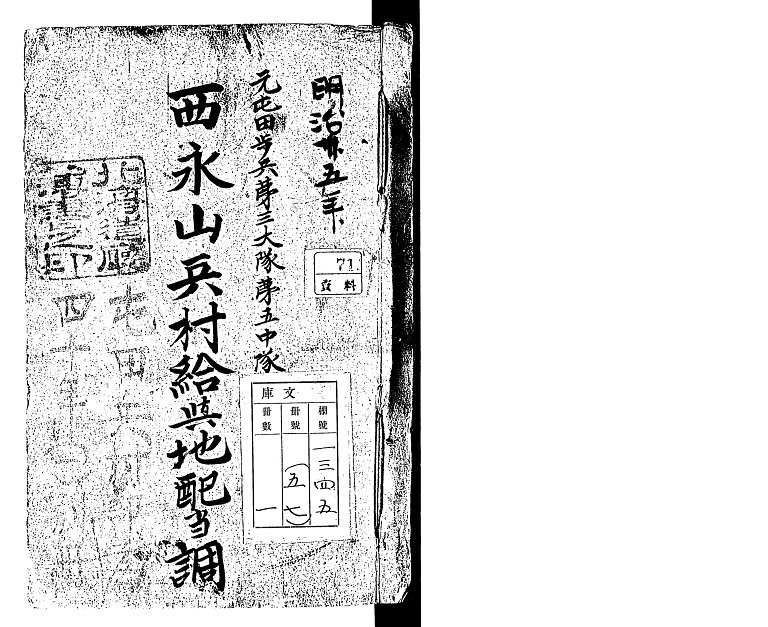 明治卅五年
元屯田歩兵第三大隊第五中隊
西永山兵村給與地配当調
71
資料
文庫
棚號 一三四五
冊號 (五七)
冊數 一
北海道廳
圖書之印